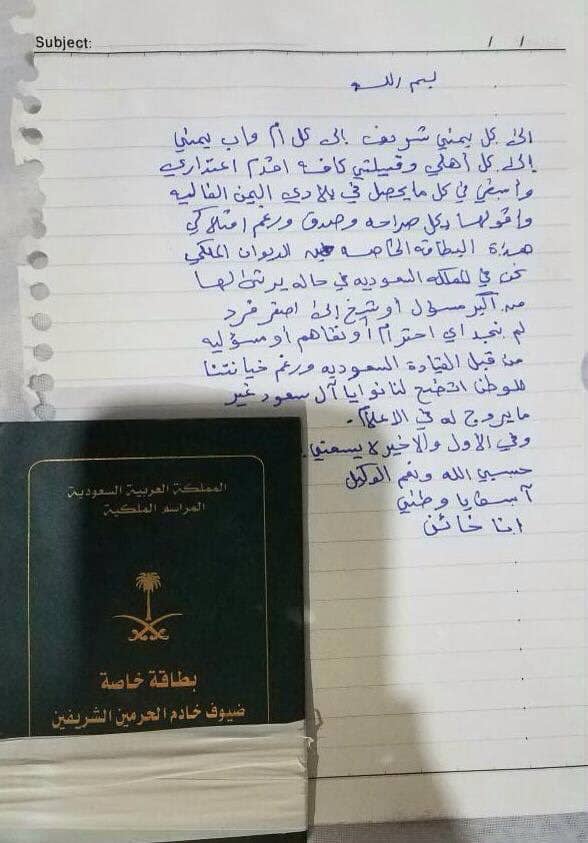 Subject:
/ /
بسم الله
الى كل يمني شريف الى كل أم واب يمني
إلى كل أهلي وقبيلتي كافه اقدم اعتذاري
وأسفي في كل ما يحصل في بلادي اليمن الغاليه
واقولها بكل صراحه وصدق ورغم امتلاكي
هذة البطاقه الخاصه الديوان الملكي
نحن في المملكه السعوديه في حاله يرثى لها
من أكبر مسؤل أو شيخ إلى اصغر فرد
لم نجد اي احترام أو تفاهم أو مسؤليه
من قبل القيادة السعوديه ورغم خيانتنا
للوطن اتضح لنا نوايا آل سعود غير
ما يروج له في الاعلام.
وفي الاول والاخير لا يسعني
حسبي الله ونعم الوكيل
آسف يا وطني
انا خائن
المملكة العربية السعودية
المراسم الملكية
بطاقة خاصة
ضيوف خادم الحرمين الشريفين